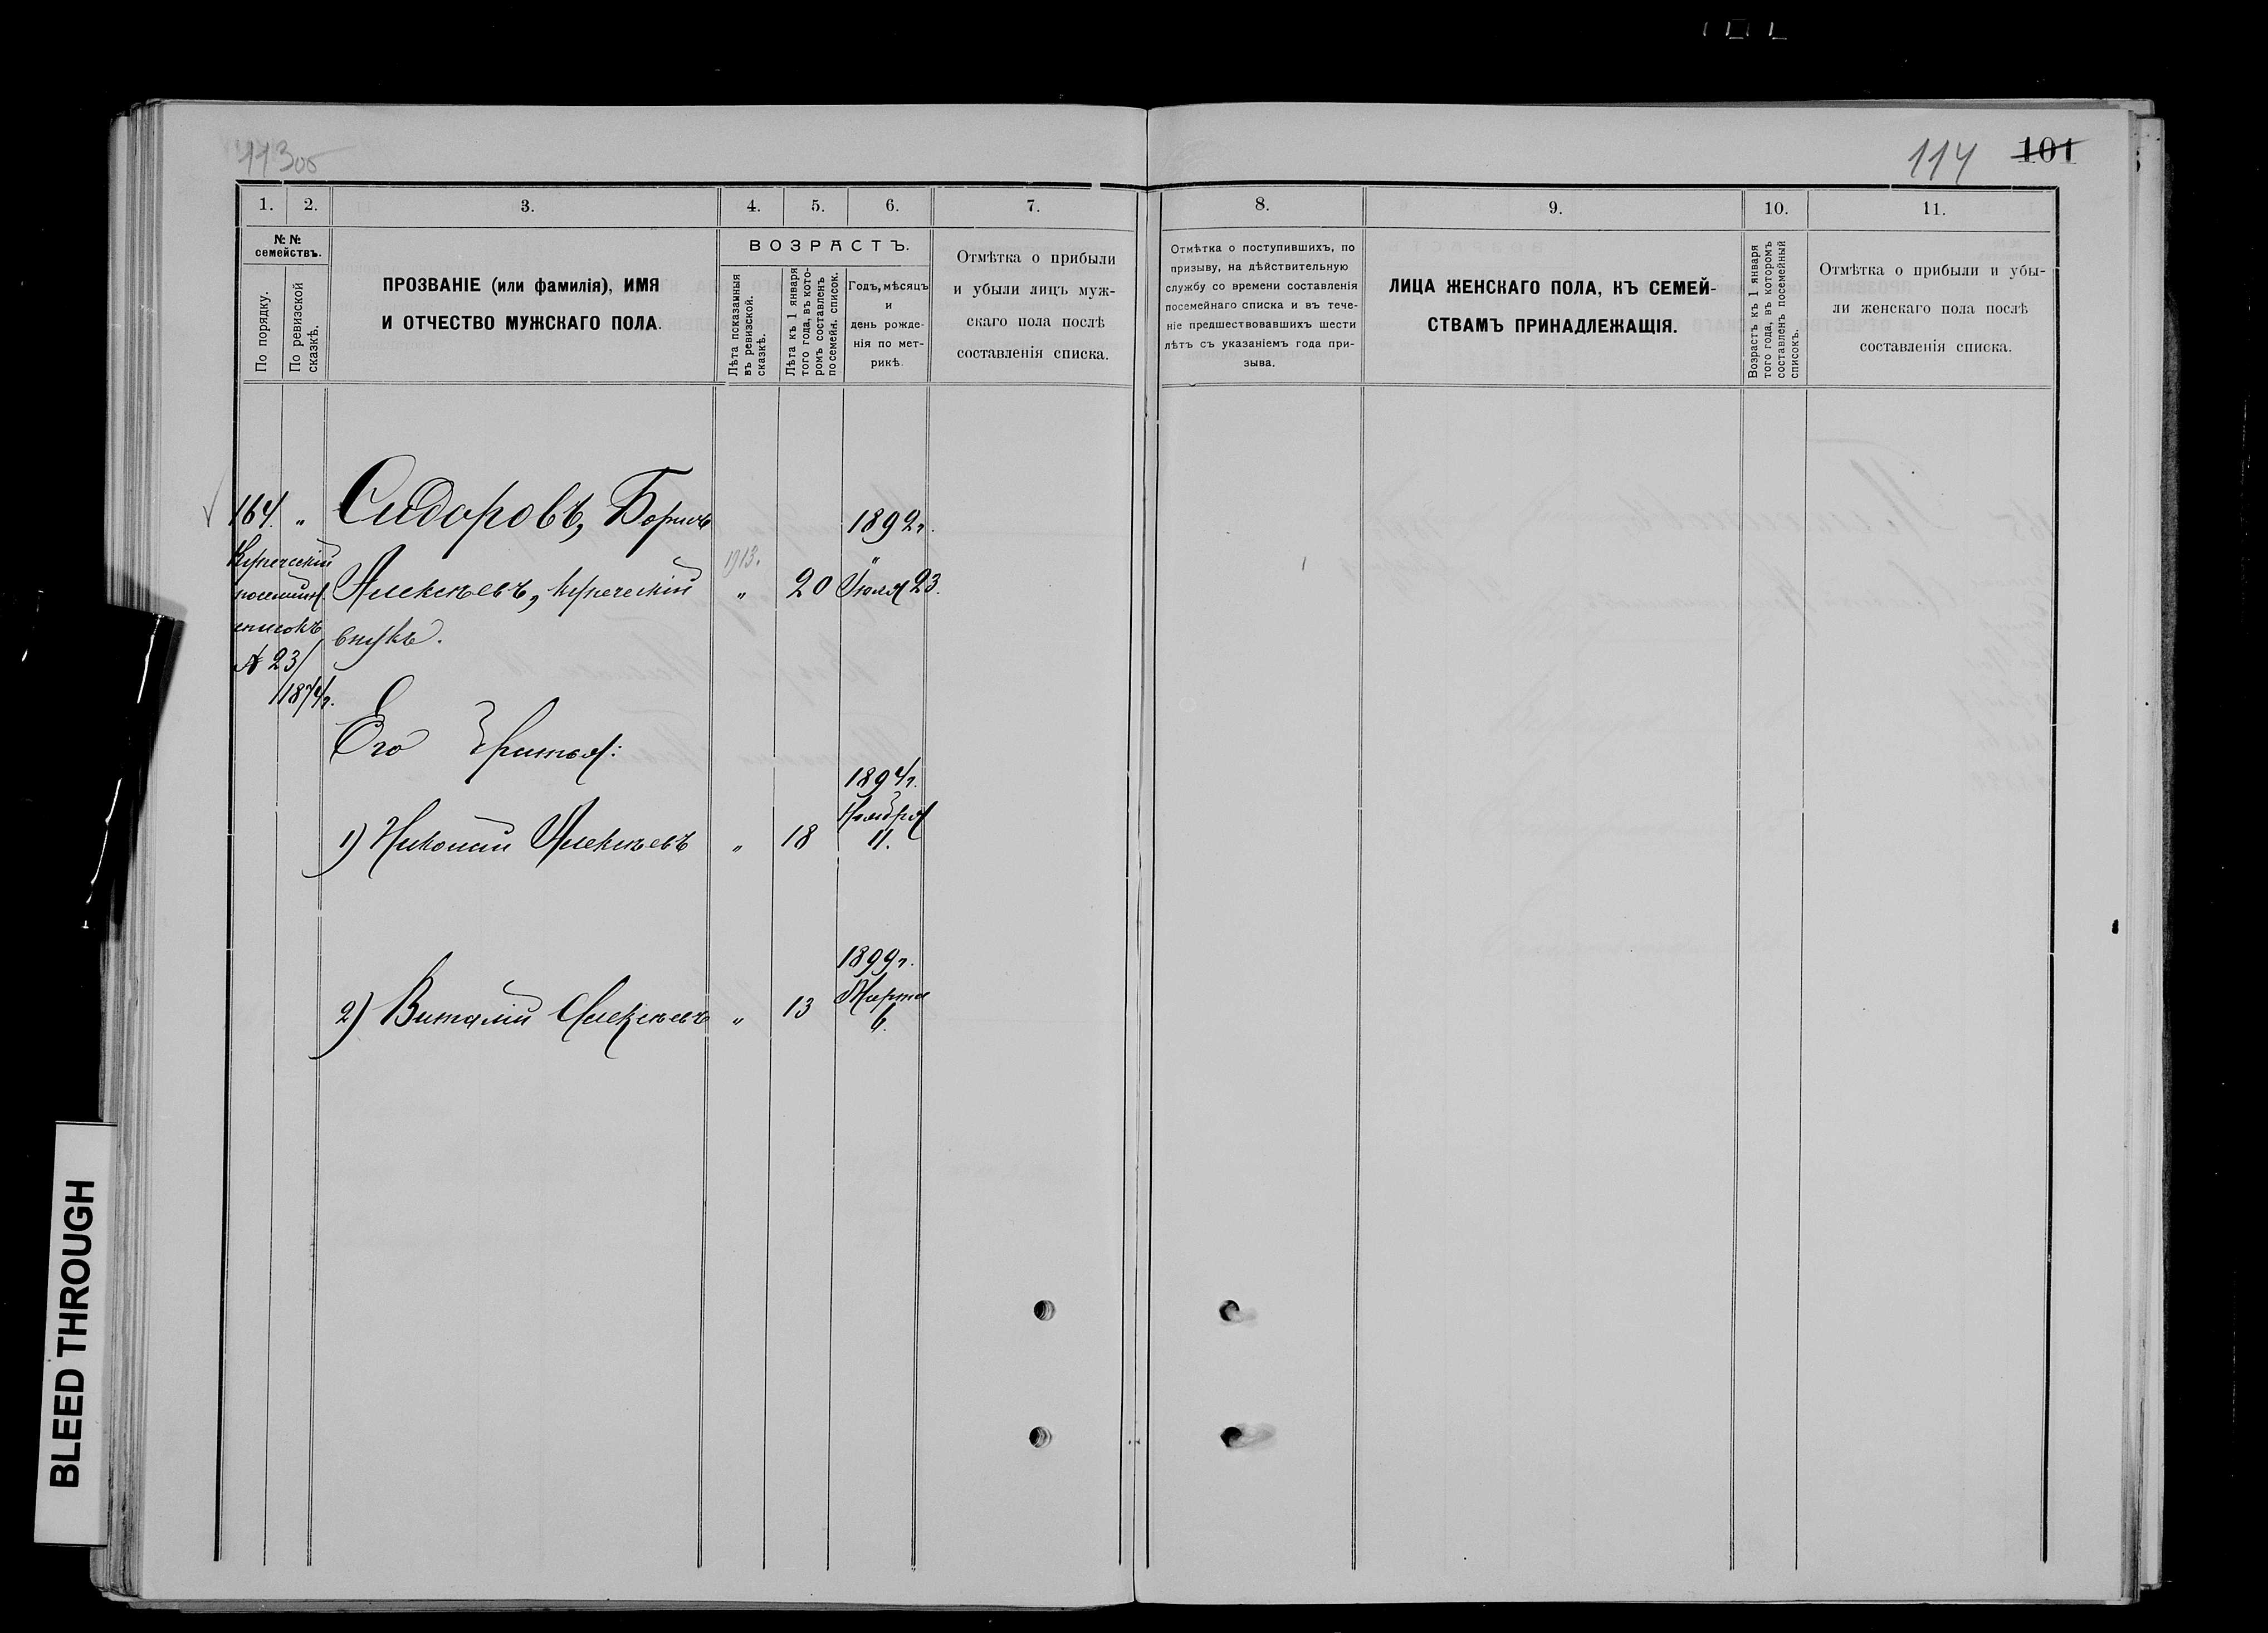 113об
114 101
1. 2. 3. 4. 5. 6. 7. 8. 9. 10. 11.
№№ семействъ.
По порядку.
По ревизской
сказкѣ.
ПРОЗВАНІЕ (или фамилія), ИМЯ
И ОТЧЕСТВО МУЖСКАГО ПОЛА.
ВОЗРАСТЪ.
Лѣта показанныя
въ ревизской.
сказкѣ.
Лѣта къ 1 января
того года, въ кото-
ромъ составленъ
посемейн. список.
Годъ, мѣсяцъ
и
день рожде-
нія по мет-
рикѣ.
Отмѣтка о прибыли
и убыли лицъ муж-
скаго пола послѣ
составленія списка.
Отмѣтка о поступившихъ, по
призыву, на дѣйствительную
службу со времени составленія
посемейнаго списка и въ тече-
ніе предшествовавшихъ шести
лѣтъ съ указаніемъ года при-
зыва.
ЛИЦА ЖЕНСКАГО ПОЛА, КЪ СЕМЕЙ-
СТВАМЪ ПРИНАДЛЕЖАЩІЯ.
Возрастъ къ 1 января
того года, въ которомъ
составленъ посемейный
списокъ.
Отмѣтка о прибыли и убы-
ли женскаго пола послѣ
составленія списка.
164. „ Сидоровъ, Борисъ 1892 г.
Купеческій
посемейн.
списокъ
№ 23/
1874 г.
Алексѣевъ, купеческій 1913. „ 20 Іюля 23.
внукъ.
Его братья:
1) Николай Алексѣевъ „ 18 1894 г.
Ноября
11.
2) Виталій Алексѣевъ „ 13 1899 г.
Марта
6.
BLEED THROUGH